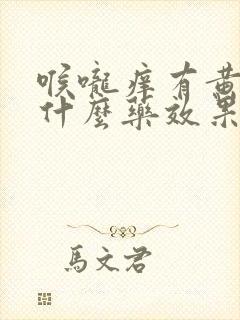 喉嚨痒有黄
什麼藥效果
馬文君